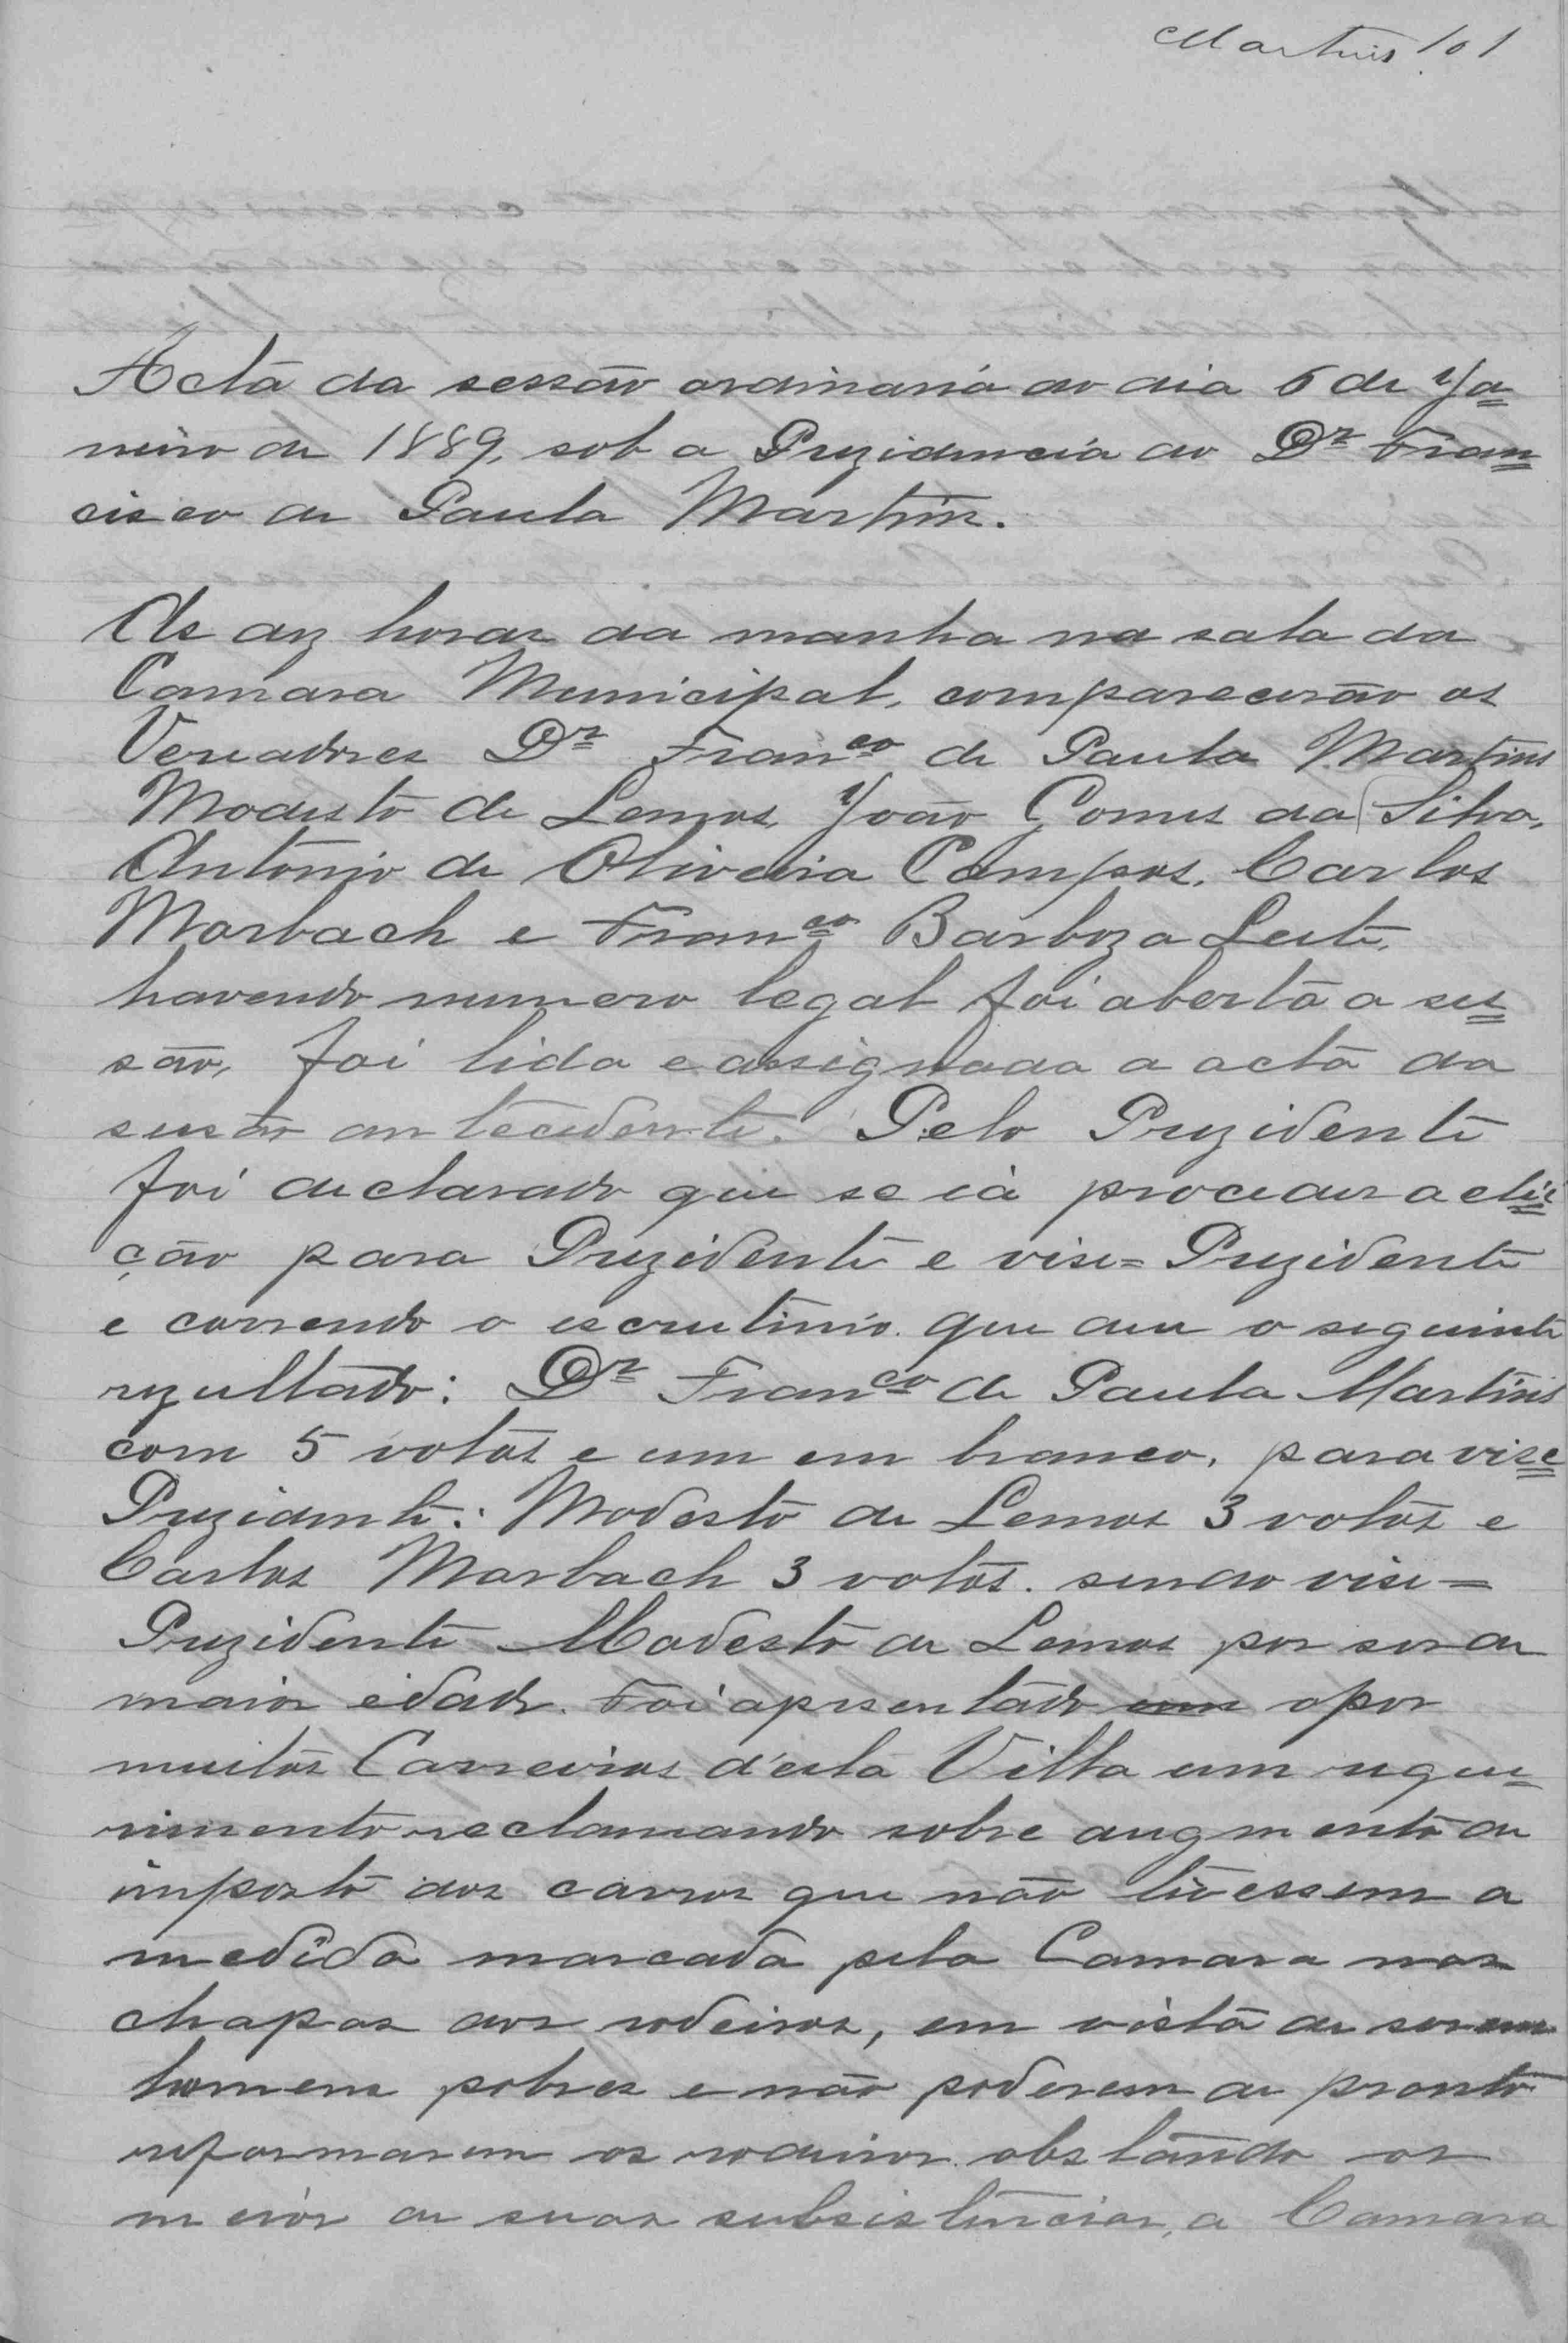 Martins 101
Acta da sessão ordinaria do dia 6 de Ja=
neiro de 1889, sob a Prezidencia do Dr Fran=
cisco de Paula Martins.
As dez horas da manha na sala da
Camara Municipal, comparecerão os
Vereadores Dr Franco de Paula Martins
Modesto de Lemos, João Gomes da Silva,
Antonio de Oliveira Campos, Carlos
Marbach e Franco Barboza Leite,
havendo numero legal foi aberta a ses=
são, foi lida e assignada a acta da
sessão antecedente. Pelo Prezidente
foi declarado que se ia proceder a elei=
ção para Prezidente e vise=Prezidente
e correndo o escrutinio que deu o seguinte
rezultado: Dr Franco de Paula Martins
com 5 votos e um em branco, para vise=
Prezidente: Modesto de Lemos 3 votos e
Carlos Marbach 3 votos. sendo vise=
Prezidente Modesto de Lemos por ser de
maior edade. Foi apresentado um o por
muitos Carreiros d'esta Villa um reque=
rimento reclamando sobre augmento de
imposto dos carros que não tivessem a
medida marcada pela Camara nas
chapas dos rodeiros, em vista de serem
homens pobres e não poderem de pronto
reformarem os rodeiros obstando os
meios de suas subsistencias, a Camara